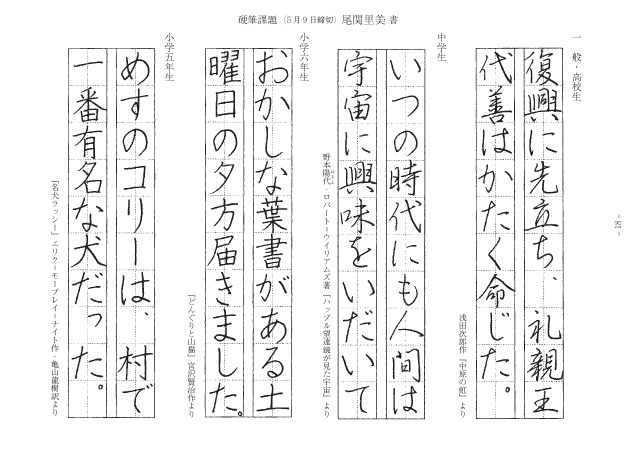 硬筆課題（5月9日締切）尾関里美 書
一般・高校生
復興に先立ち、礼親王
代善はかたく命じた。
浅田次郎作『中原の虹』より
中学生
いつの時代にも人間は
宇宙に興味をいだいて
野本陽代・ロバート＝ウイリアムズ著『ハッブル望遠鏡が見た宇宙』より
小学六年生
おかしな葉書がある土
曜日の夕方届きました。
『どんぐりと山猫』宮沢賢治作より
小学五年生
めすのコリーは、村で
一番有名な犬だった。
『名犬ラッシー』エリク＝モーブレイ＝ナイト作 亀山龍樹訳より